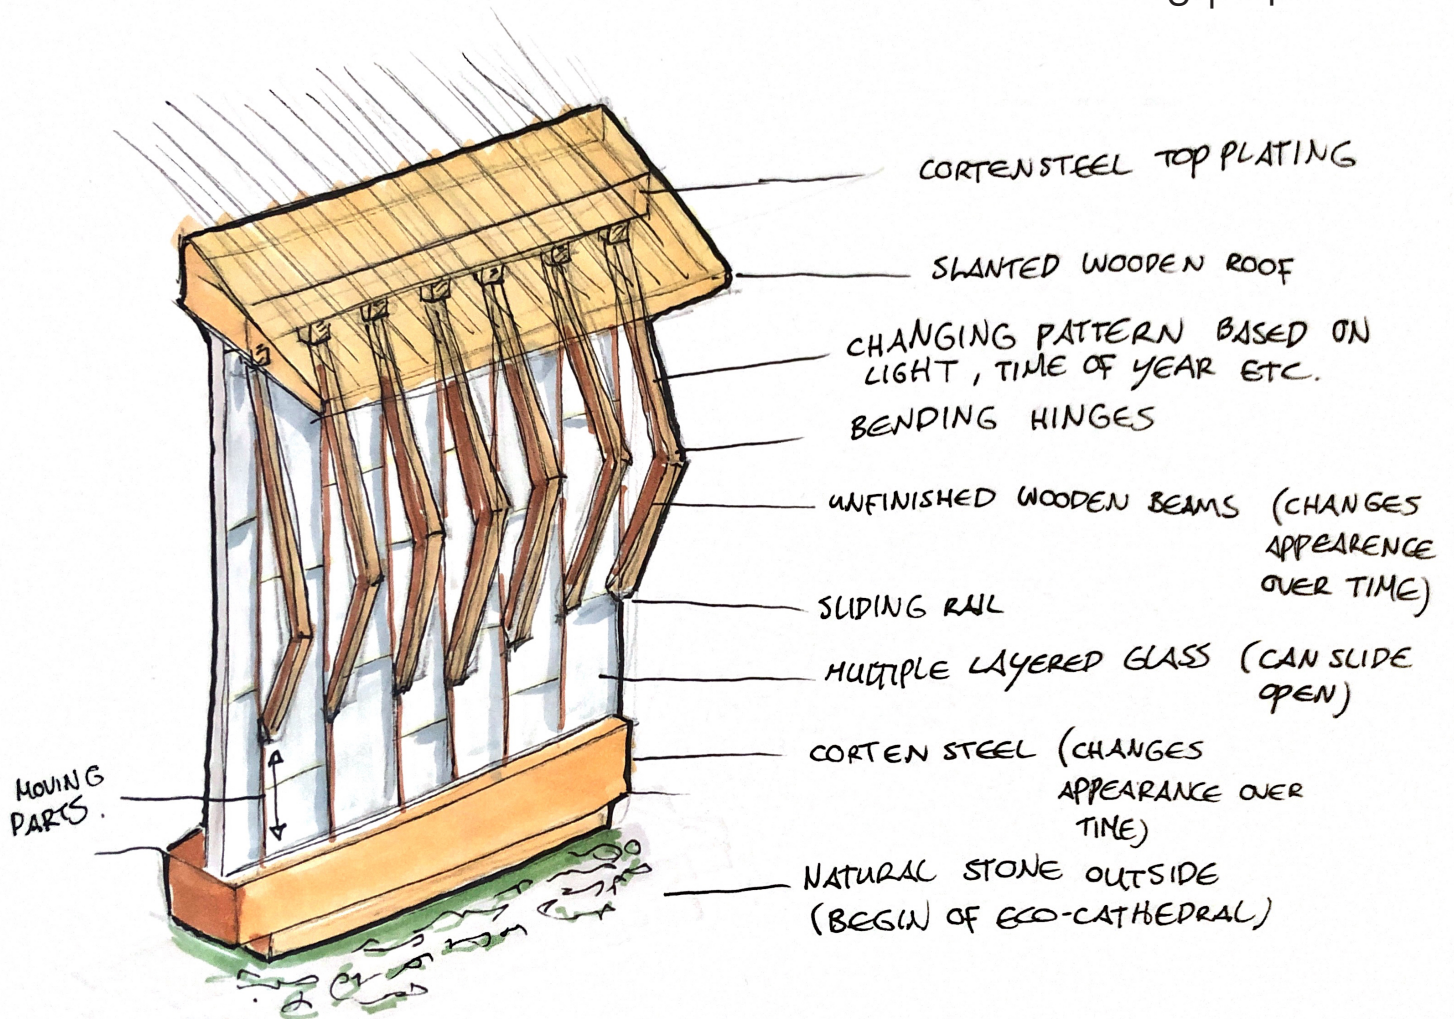 CORTENSTEEL TOP PLATING
SLANTED WOODEN ROOF
CHANGING PATTERN BASED ON
LIGHT, TIME OF YEAR ETC.
BENDING HINGES
UNFINISHED WOODEN BEAMS (CHANGES
APPEARENCE
OVER TIME)
SLIDING RAIL
MULTIPLE LAYERED GLASS (CAN SLIDE
OPEN)
CORTEN STEEL (CHANGES
APPEARANCE OVER
TIME)
MOVING
PARTS.
NATURAL STONE OUTSIDE
(BEGIN OF ECO-CATHEDRAL)